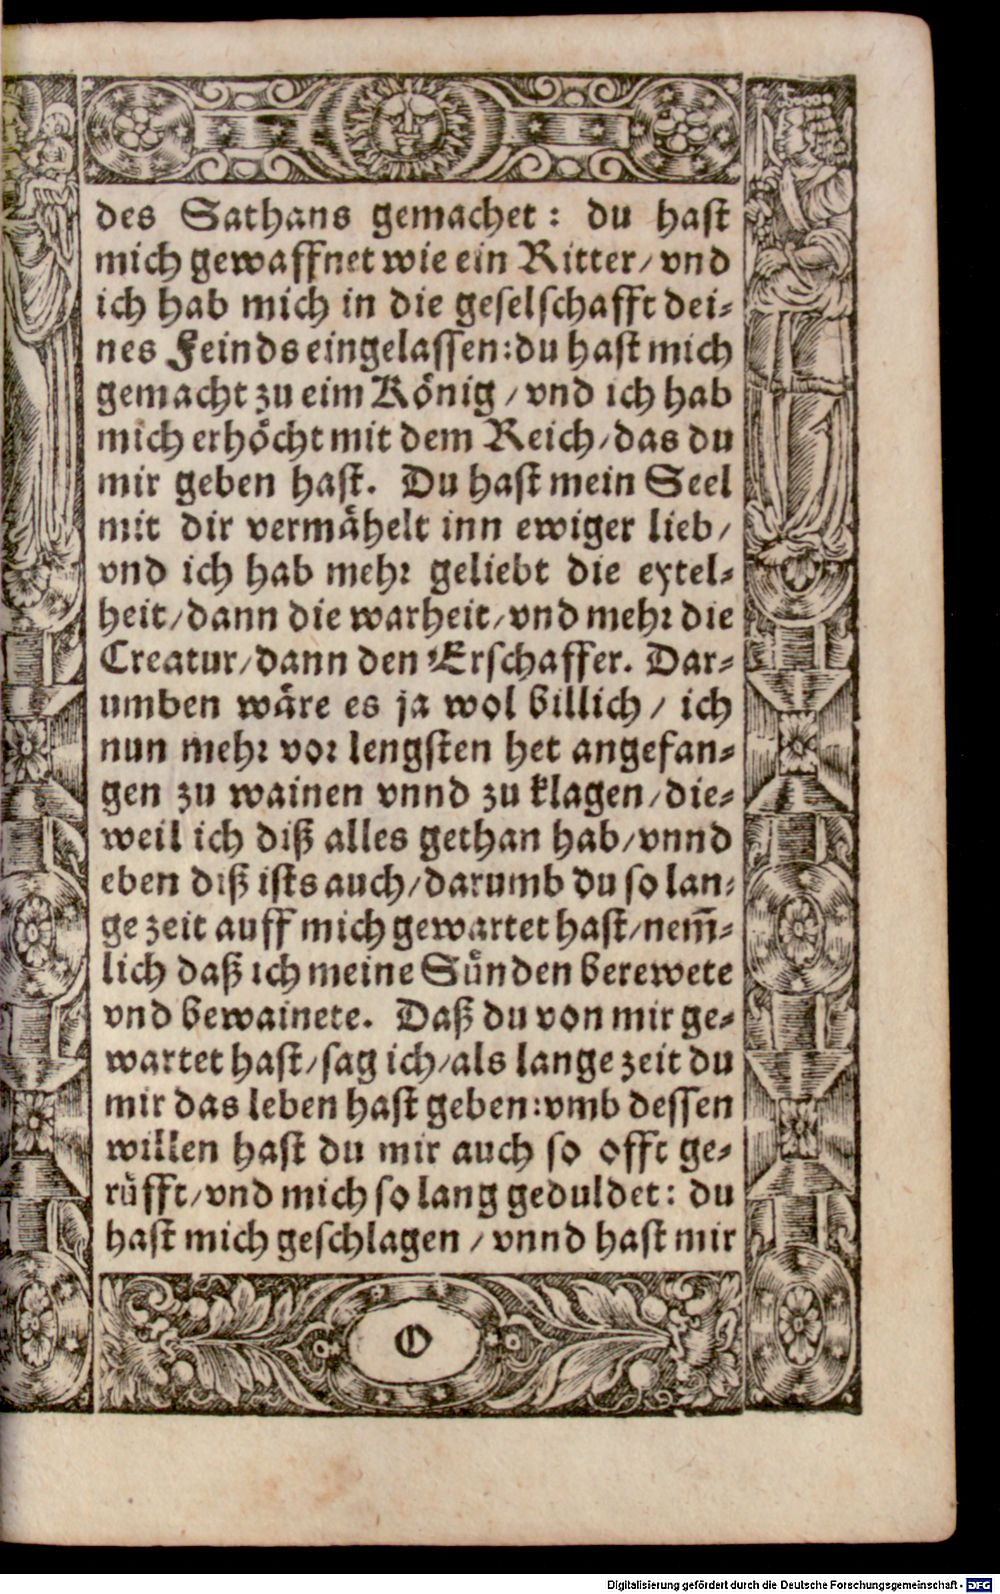 des Sathans gemachet: du hast
mich gewaffnet wie ein Ritter/ vnd
ich hab mich in die geselschafft dei-
nes Feinds eingelassen: du hast mich
gemacht zu eim König / vnd ich hab
mich erhöcht mit dem Reich/ das du
mir geben hast. Du hast mein Seel
mit dir vermähelt inn ewiger lieb/
vnd ich hab mehr geliebt die eytel-
heit/ dann die warheit/ vnd mehr die
Creatur/ dann den Erschaffer. Dar-
umben wäre es ja wol billich / ich
nun mehr vor lengsten het angefan-
gen zu wainen vnnd zu klagen/ die-
weil ich diß alles gethan hab/ vnnd
eben diß ists auch/ darumb du so lan-
ge zeit auff mich gewartet hast/ nem̄-
lich daß ich meine Sünden berewete
vnd bewainete. Daß du von mir ge-
wartet hast/ sag ich/ als lange zeit du
mir das leben hast geben: vmb dessen
willen hast du mir auch so offt ge-
rüfft/ vnd mich so lang geduldet: du
hast mich geschlagen / vnnd hast mir
O
Digitalisierung gefördert durch die Deutsche Forschungsgemeinschaft - DFG